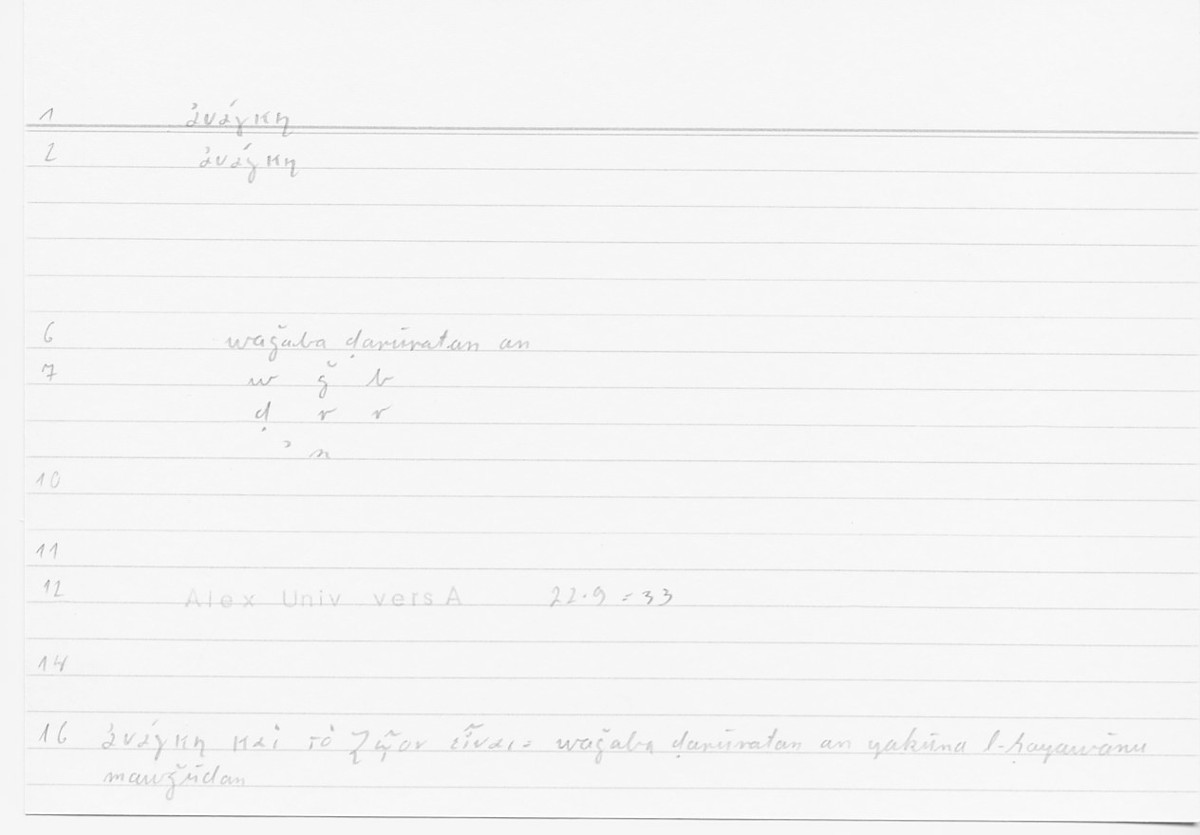 1 ἀνάγκη
2 ἀνάγκη
6 waǧaba ḍarūratan an
7 w ǧ b
ḍ r r
ʾ n
10
11
12 Alex Univ vers A 22.9 = 33
14
16 ἀνάγκη καὶ τὸ ζῷον εἶναι = waǧaba ḍarūratan an yakūna l-ḥayawānu
mawǧūdan